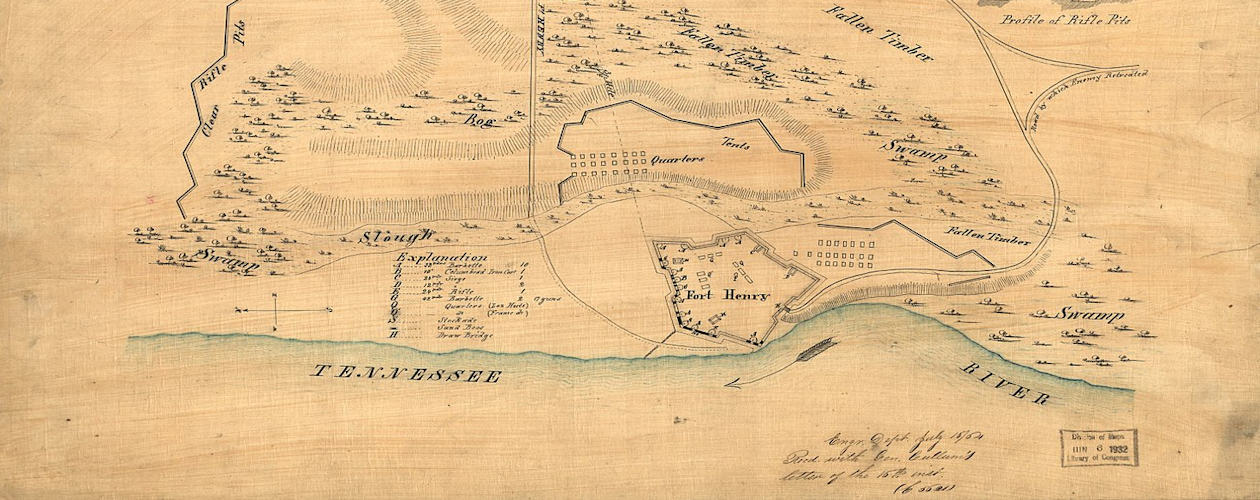 Profile of Rifle Pits
Fallen Timber
Fallen Timber
Clear Rifle Pits
Ft HENRY
Road by which Enemy Retreated
Bog
Tents
Quarters
Swamp
Slough
Swamp
Fallen Timber
Explanation
Barbette 10
B 10" Columbiad Iron Cast 1
Siege
D 12
E 24 Rifle 1
Barbette 2 17 guns
Quarters (Log Huts)
(Frame do)
S Stockade
Sand Bags
H Draw Bridge
Fort Henry
Swamp
TENNESSEE
RIVER
Engr. Dept. July
Recd with Gen. Cullum's
letter of the 15th inst.
Division of Maps
JUN 6 1932
Library of Congress